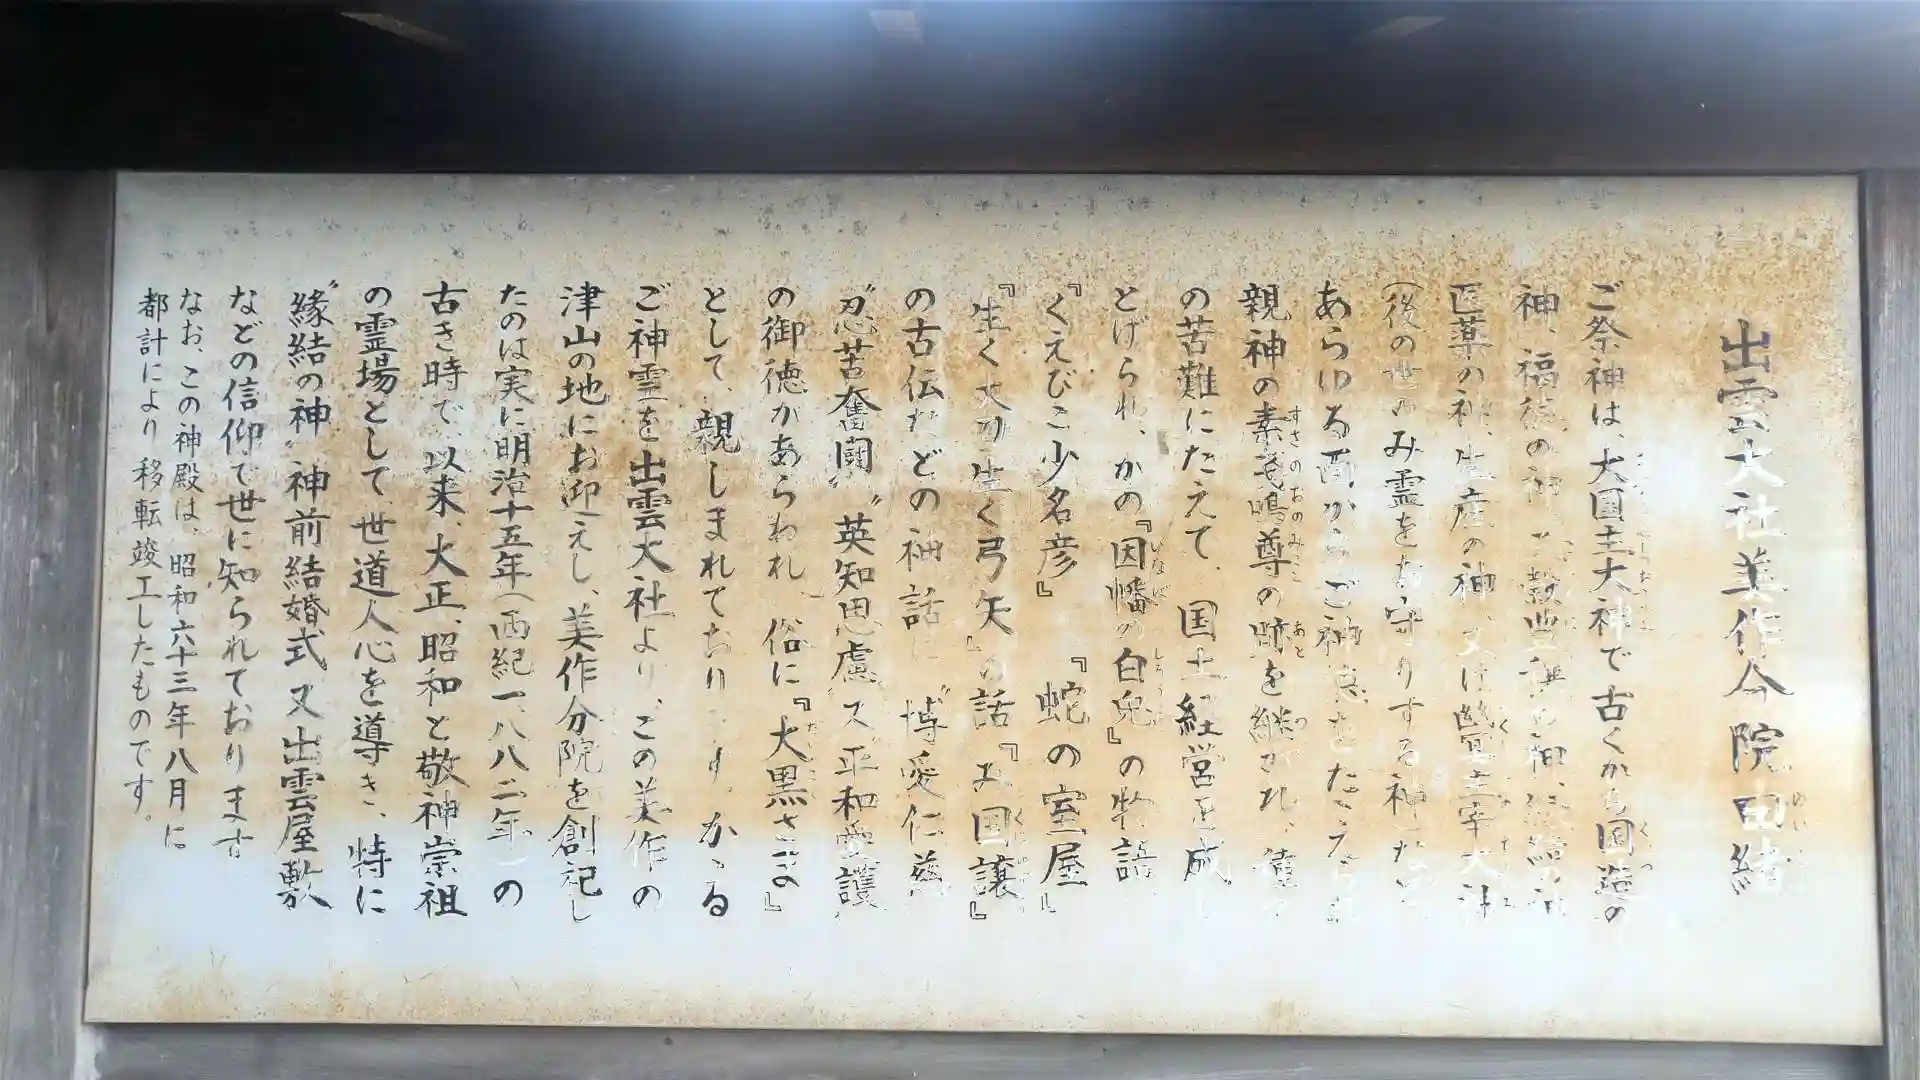 出雲大社美作分院由緒
ご祭神は、大国主大神で古くから国造の
神、福徳の神、五穀豊穣の神、縁結の神
医薬の神、生産の神、又は幽冥主宰大神
(後の世のみ霊をお守りする神)など
あらゆる面からご神徳をたたえられ
親神の素戔鳴尊の跡を継がれ、種々
の苦難にたえて、国土経営を成し
とげられ、かの『因幡の白兎』の物語
『くえびこ少名彦』 『蛇の室屋』
『生く大刀生く弓矢』の話『国譲』
の古伝などの神話に〝博愛仁慈〟
〝忍苦奮闘〟〝英知思慮〟又〝平和愛護〟
の御徳があらわれ、俗に『大黒さま』
として、親しまれており 。かゝる
ご神霊を出雲大社より、この美作の
津山の地にお迎えし、美作分院を創祀し
たのは実に明治十五年(西紀一八八二年)の
古き時で、以来、大正、昭和と敬神崇祖
の霊場として、世道人心を導き、特に
〝縁結の神〟神前結婚式 又出雲屋敷
などの信仰で世に知られております
なお、この神殿は、昭和六十三年八月に
都計により移転竣工したものです。